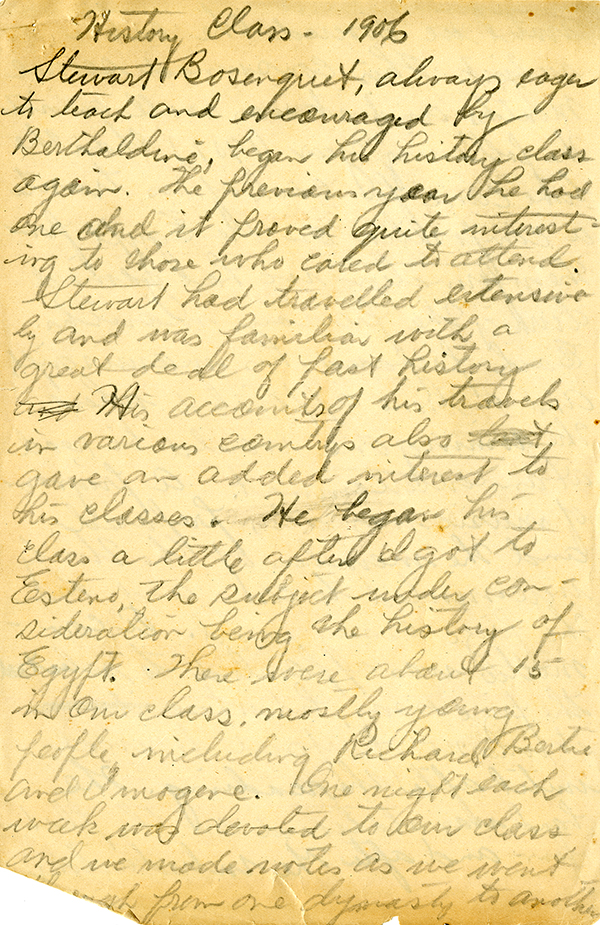 History Class - 1906
Stewart Bosenquet, always eager
to teach and encouraged by
Berthaldine, began his history class
again. The previous year he had
one and it proved quite interest-
ing to those who cared to attend.
Stewart had travelled extensive
ly and was familiar with a
great deal of past history
His accounts of his travels
in various countrys also
gave an added interest to
his classes. He began his
class a little after I got to
Estero, the subject under con-
sideration being the history of
Egypt. There were about 15
in our class, mostly young
people, including Richard, Bertie
and Imogene. One night each
week was devoted to our class
and we made notes as we went
from one dynasty to another